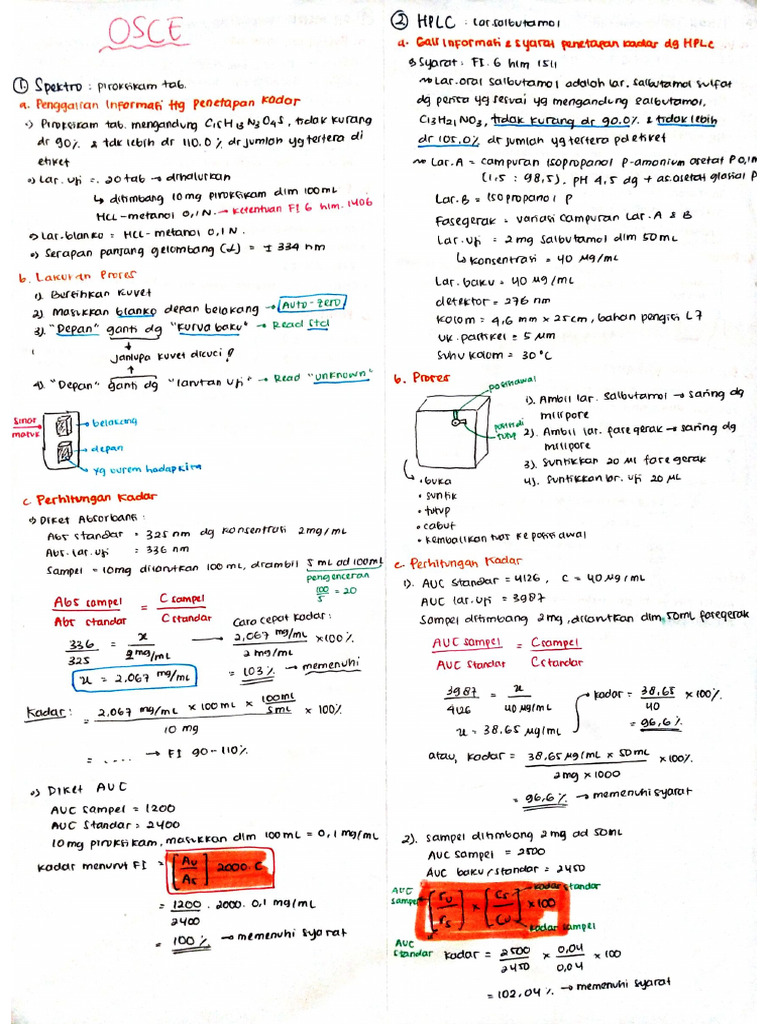 OSCE
① Spektro : piroksikam tab.
a. Penggalian Informasi ttg penetapan kadar
•) Piroksikam tab. mengandung C15H13N3O4S, tidak kurang
dr 90% & tdk lebih dr 110.0% dr jumlah yg tertera di
etiket
•) Lar. uji =. 20 tab → dihaluskan
↳ ditimbang 10 mg piroksikam dlm 100 mL
HCL-metanol 0,1 N. → ketentuan FI 6 hlm. 1406
•) Lar. blanko = HCL-metanol 0,1 N.
•) Serapan panjang gelombang (λ) = ± 334 nm
b. Lakukan Proses
1). Bersihkan kuvet
2). Masukkan blanko depan belakang → AUTO-ZERO
3). "Depan" ganti dg "kurva baku" → Read Std
Janlupa kuvet dicuci!
4). "Depan" ganti dg "larutan uji" → Read "unknown"
sinar
masuk
belakang
depan
yg burem hadap kita
c. Perhitungan Kadar
•) Diket Absorbansi :
Abs standar = 325 nm dg konsentrasi 2mg/mL
Abs. lar. uji = 336 nm
Sampel = 10mg dilarutkan 100 mL, diambil 5 mL ad 100mL
pengenceran
100/5 = 20
Abs sampel / Abs standar = C sampel / C standar
336/325 = x / 2mg/mL
x = 2,067 mg/mL
Cara cepat kadar:
2,067 mg/mL / 2 mg/mL × 100%
= 103% → memenuhi
Kadar : = 2,067 mg/mL × 100 mL × 100mL/5mL / 10 mg × 100%
= .... → FI 90-110%
•) Diket AUC
AUC sampel = 1200
AUC Standar = 2400
10 mg piroksikam, masukkan dlm 100 mL = 0,1 mg/mL
Kadar menurut FI = [Au/As] 2000.C
= 1200/2400 . 2000. 0,1 mg/mL
= 100% → memenuhi syarat
② HPLC : Lar. salbutamol
a. Gali Informasi & syarat penetapan kadar dg HPLC
•) Syarat : FI. 6 hlm 1511
~ Lar. oral Salbutamol adalah lar. salbutamol sulfat
dg perisa yg sesuai yg mengandung salbutamol,
C13H21NO3, tidak kurang dr 90.0% & tidak lebih
dr 105.0% dr jumlah yg tertera pd etiket
~ Lar. A = campuran isopropanol P-amonium asetat P 0,1 M
(1,5 : 98,5), pH 4,5 dg + as. asetat glasial P
Lar. B = isopropanol P
Fase gerak = variasi campuran Lar. A & B
Lar. uji = 2 mg Salbutamol dlm 50mL
↳ konsentrasi = 40 µg/mL
Lar. baku = 40 µg/mL
detektor = 276 nm
Kolom = 4,6 mm × 25cm, bahan pengisi L7
uk. partikel = 5 µm
Suhu kolom = 30 °C
b. Proses
posisi awal
posisi di
tutup
• buka
• suntik
• tutup
• cabut
• kembalikan tuas ke posisi awal
1). Ambil lar. Salbutamol → saring dg
milipore
2). Ambil lar. fase gerak → saring dg
milipore
3). Suntikkan 20 µl fase gerak
4). Suntikkan lar. uji 20 µL
c. Perhitungan Kadar
1). AUC Standar = 4126, C = 40 µg/mL
AUC lar. uji = 3987
Sampel ditimbang 2 mg, dilarutkan dlm 50mL fase gerak
AUC sampel / AUC standar = C sampel / C standar
3987/4126 = x / 40 µg/mL
x = 38,65 µg/mL
kadar = 38,65/40 × 100%
= 96,6%
atau, kadar = 38,65 µg/mL × 50mL / 2mg × 1000 × 100%
= 96,6% → memenuhi syarat
2). sampel ditimbang 2 mg ad 50mL
AUC sampel = 2500
AUC baku/standar = 2450
AUC sampel
[ru/rs] × [Cs/Cu] × 100
kadar standar
kadar sampel
AUC standar
kadar = 2500/2450 × 0,04/0,04 × 100
= 102,04% → memenuhi syarat